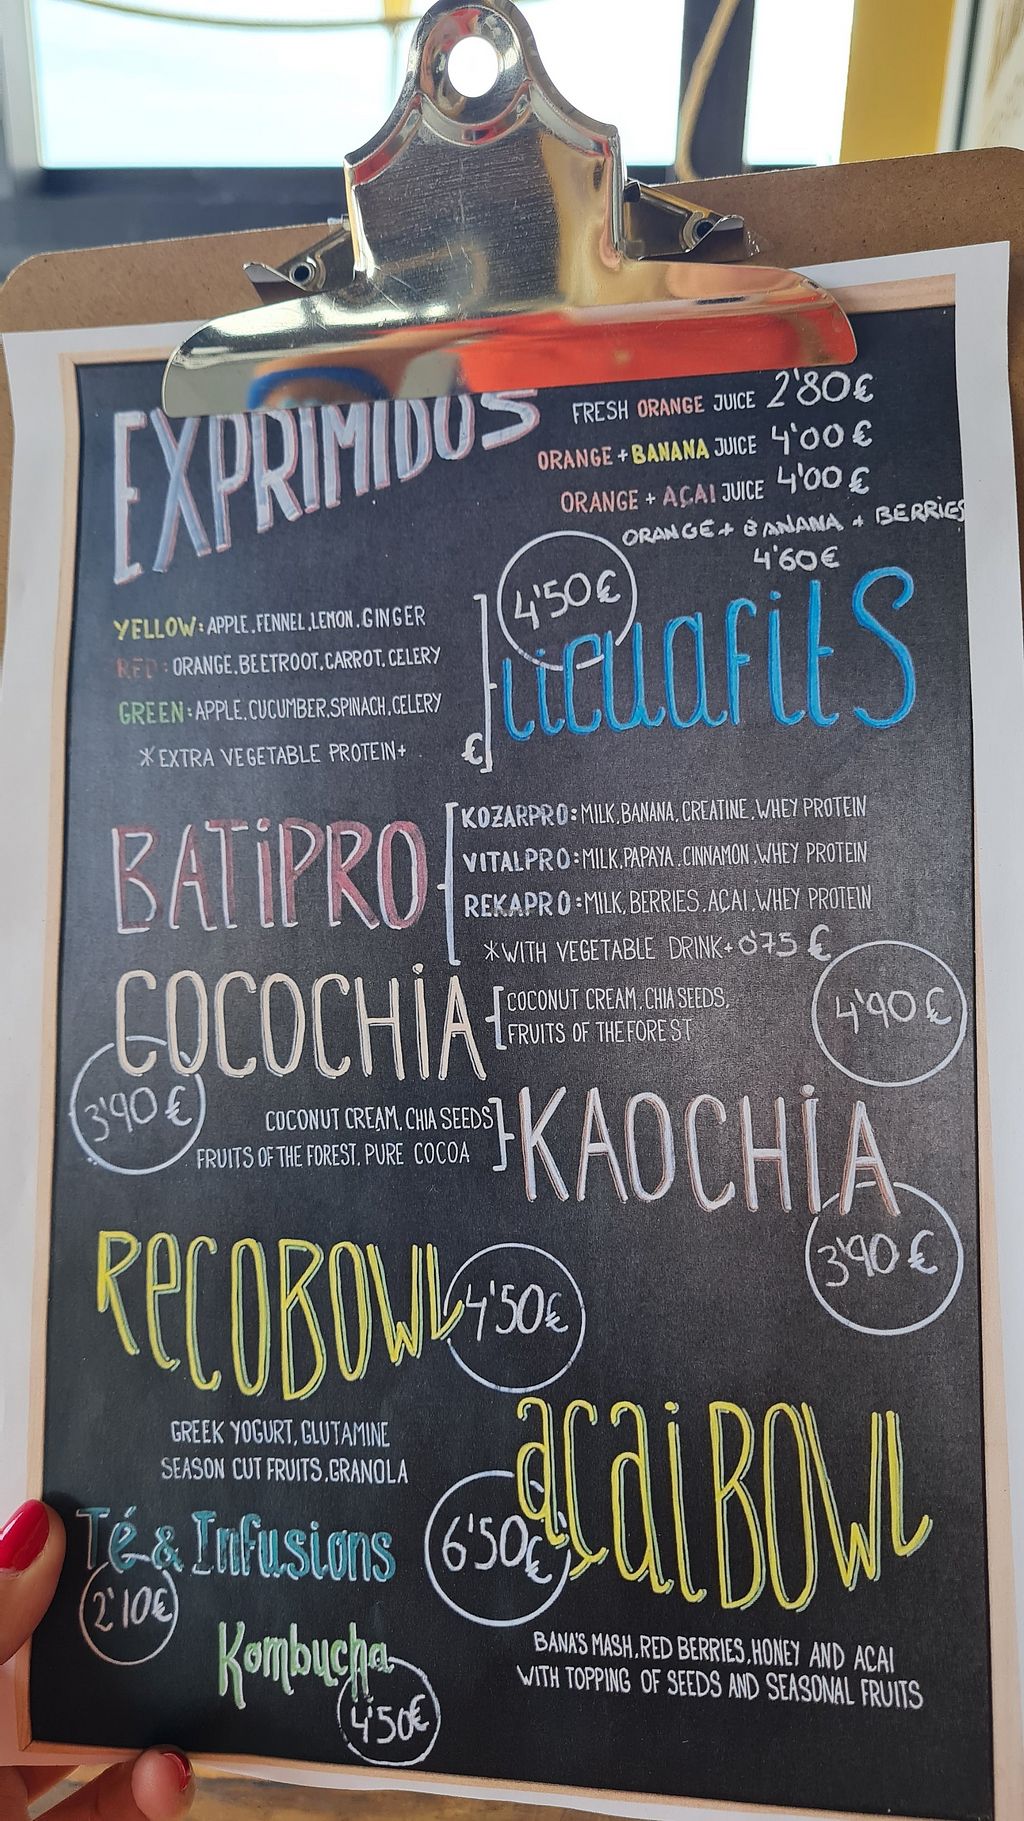 EXPRIMIDOS
FRESH ORANGE JUICE 2'80€
ORANGE + BANANA JUICE 4'00€
ORANGE + AÇAI JUICE 4'00€
ORANGE + BANANA + BERRIES
4'60€
4'50€
licuafitS
YELLOW: APPLE, FENNEL, LEMON, GINGER
RED: ORANGE, BEETROOT, CARROT, CELERY
GREEN: APPLE, CUCUMBER, SPINACH, CELERY
*EXTRA VEGETABLE PROTEIN+ €
BATiPRO
KOZARPRO: MILK, BANANA, CREATINE, WHEY PROTEIN
VITALPRO: MILK, PAPAYA, CINNAMON, WHEY PROTEIN
REKAPRO: MILK, BERRIES, AÇAI, WHEY PROTEIN
*WITH VEGETABLE DRINK+ 0'75 €
4'90€
COCOCHiA
COCONUT CREAM, CHIA SEEDS,
FRUITS OF THE FOREST
3'90€
KAOCHiA
COCONUT CREAM, CHIA SEEDS
FRUITS OF THE FOREST, PURE COCOA
3'90€
ReCOBOWL
4'50€
GREEK YOGURT, GLUTAMINE
SEASON CUT FRUITS, GRANOLA
açaiBOWL
6'50€
BANA'S MASH, RED BERRIES, HONEY AND AÇAI
WITH TOPPING OF SEEDS AND SEASONAL FRUITS
Té & Infusions
2'10€
Kombucha
4'50€